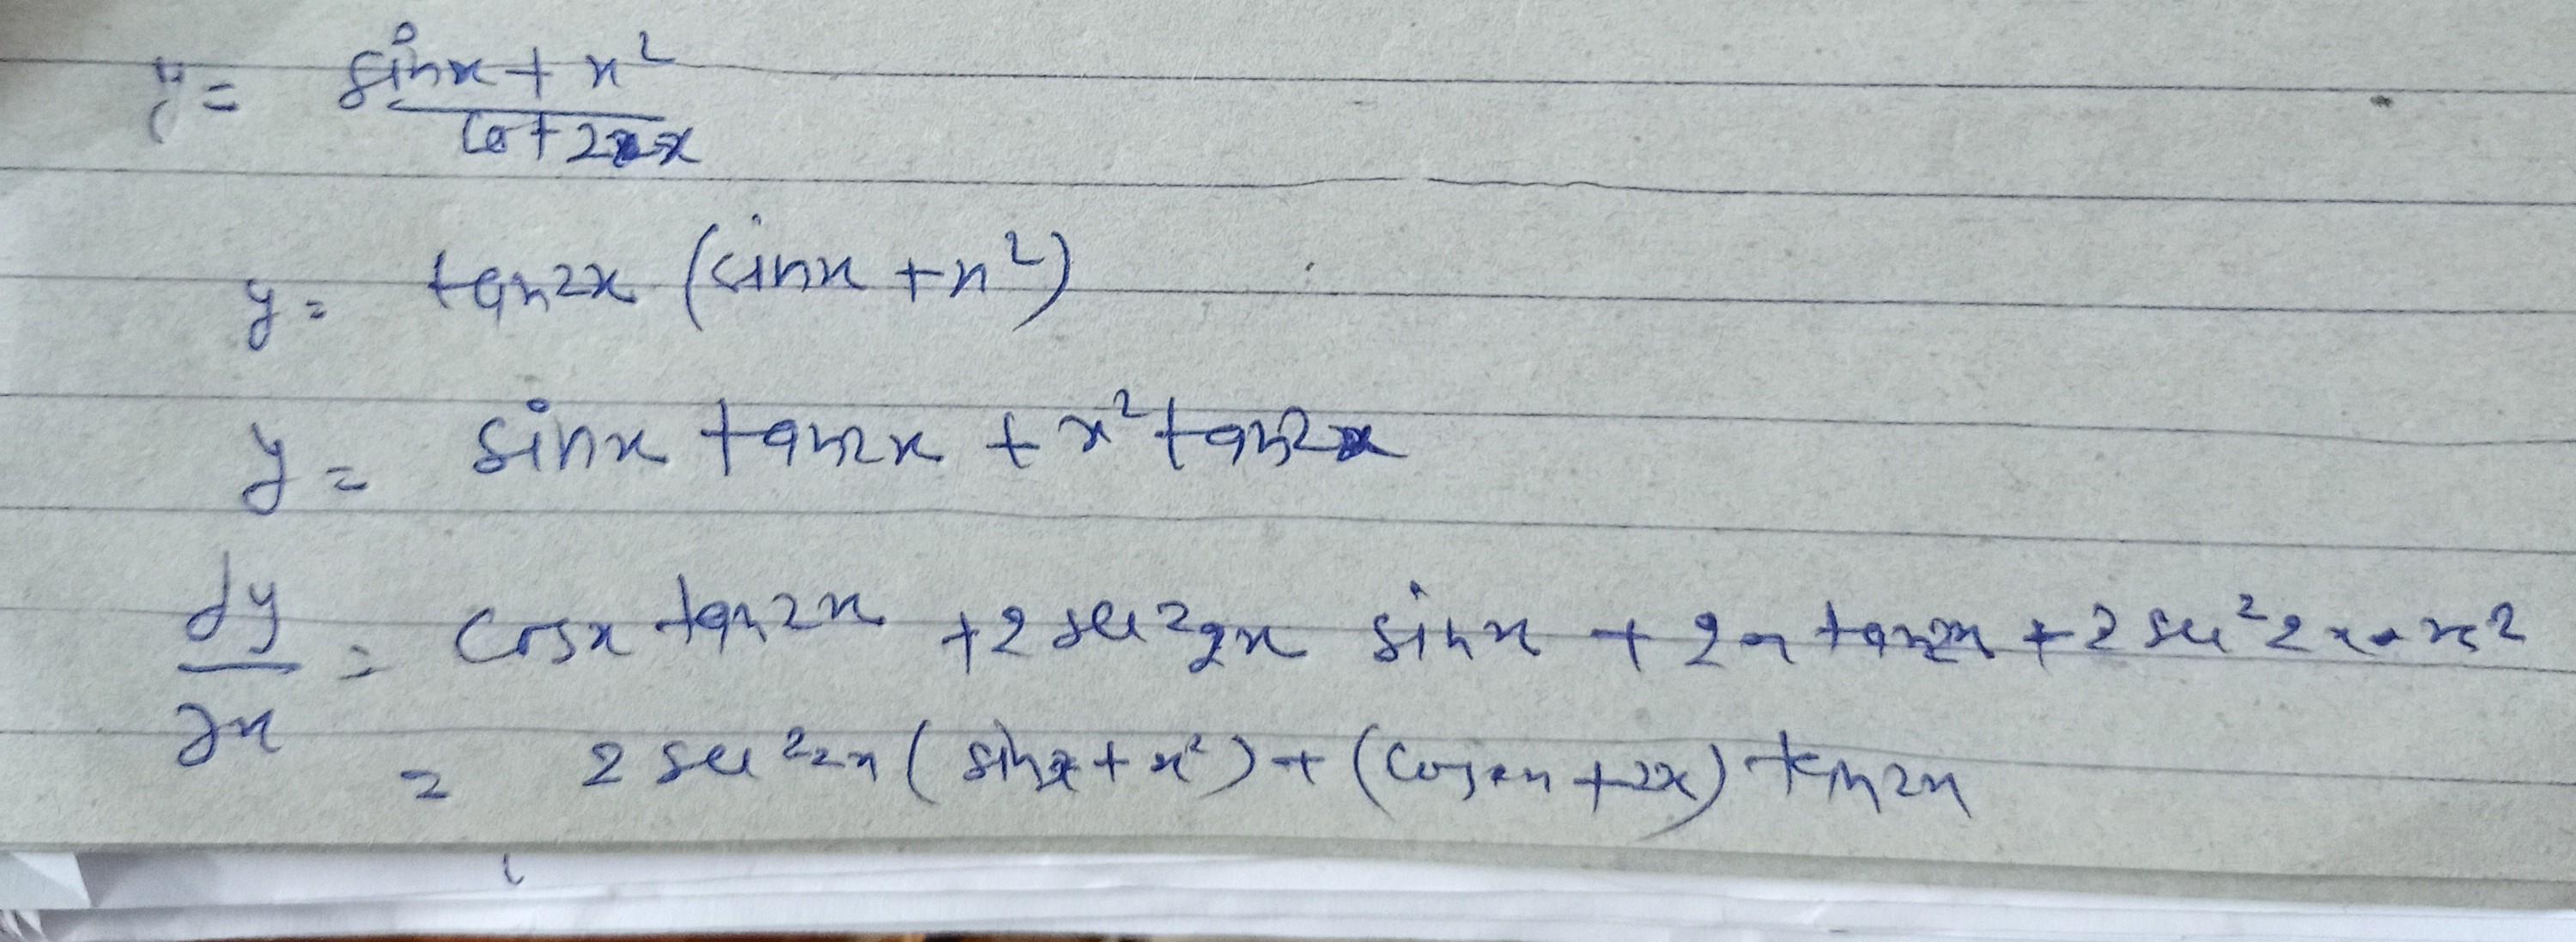 y = sinx + x²
cot2x
y = tan2x (sinx + x²)
y = sinx tan2x + x² tan2x
dy/dx = cosx tan2x + 2 sec²2x sinx + 2x tan2x + 2 sec²2x · x²
= 2 sec²2x ( sinx + x² ) + (cosx + 2x) tan2x